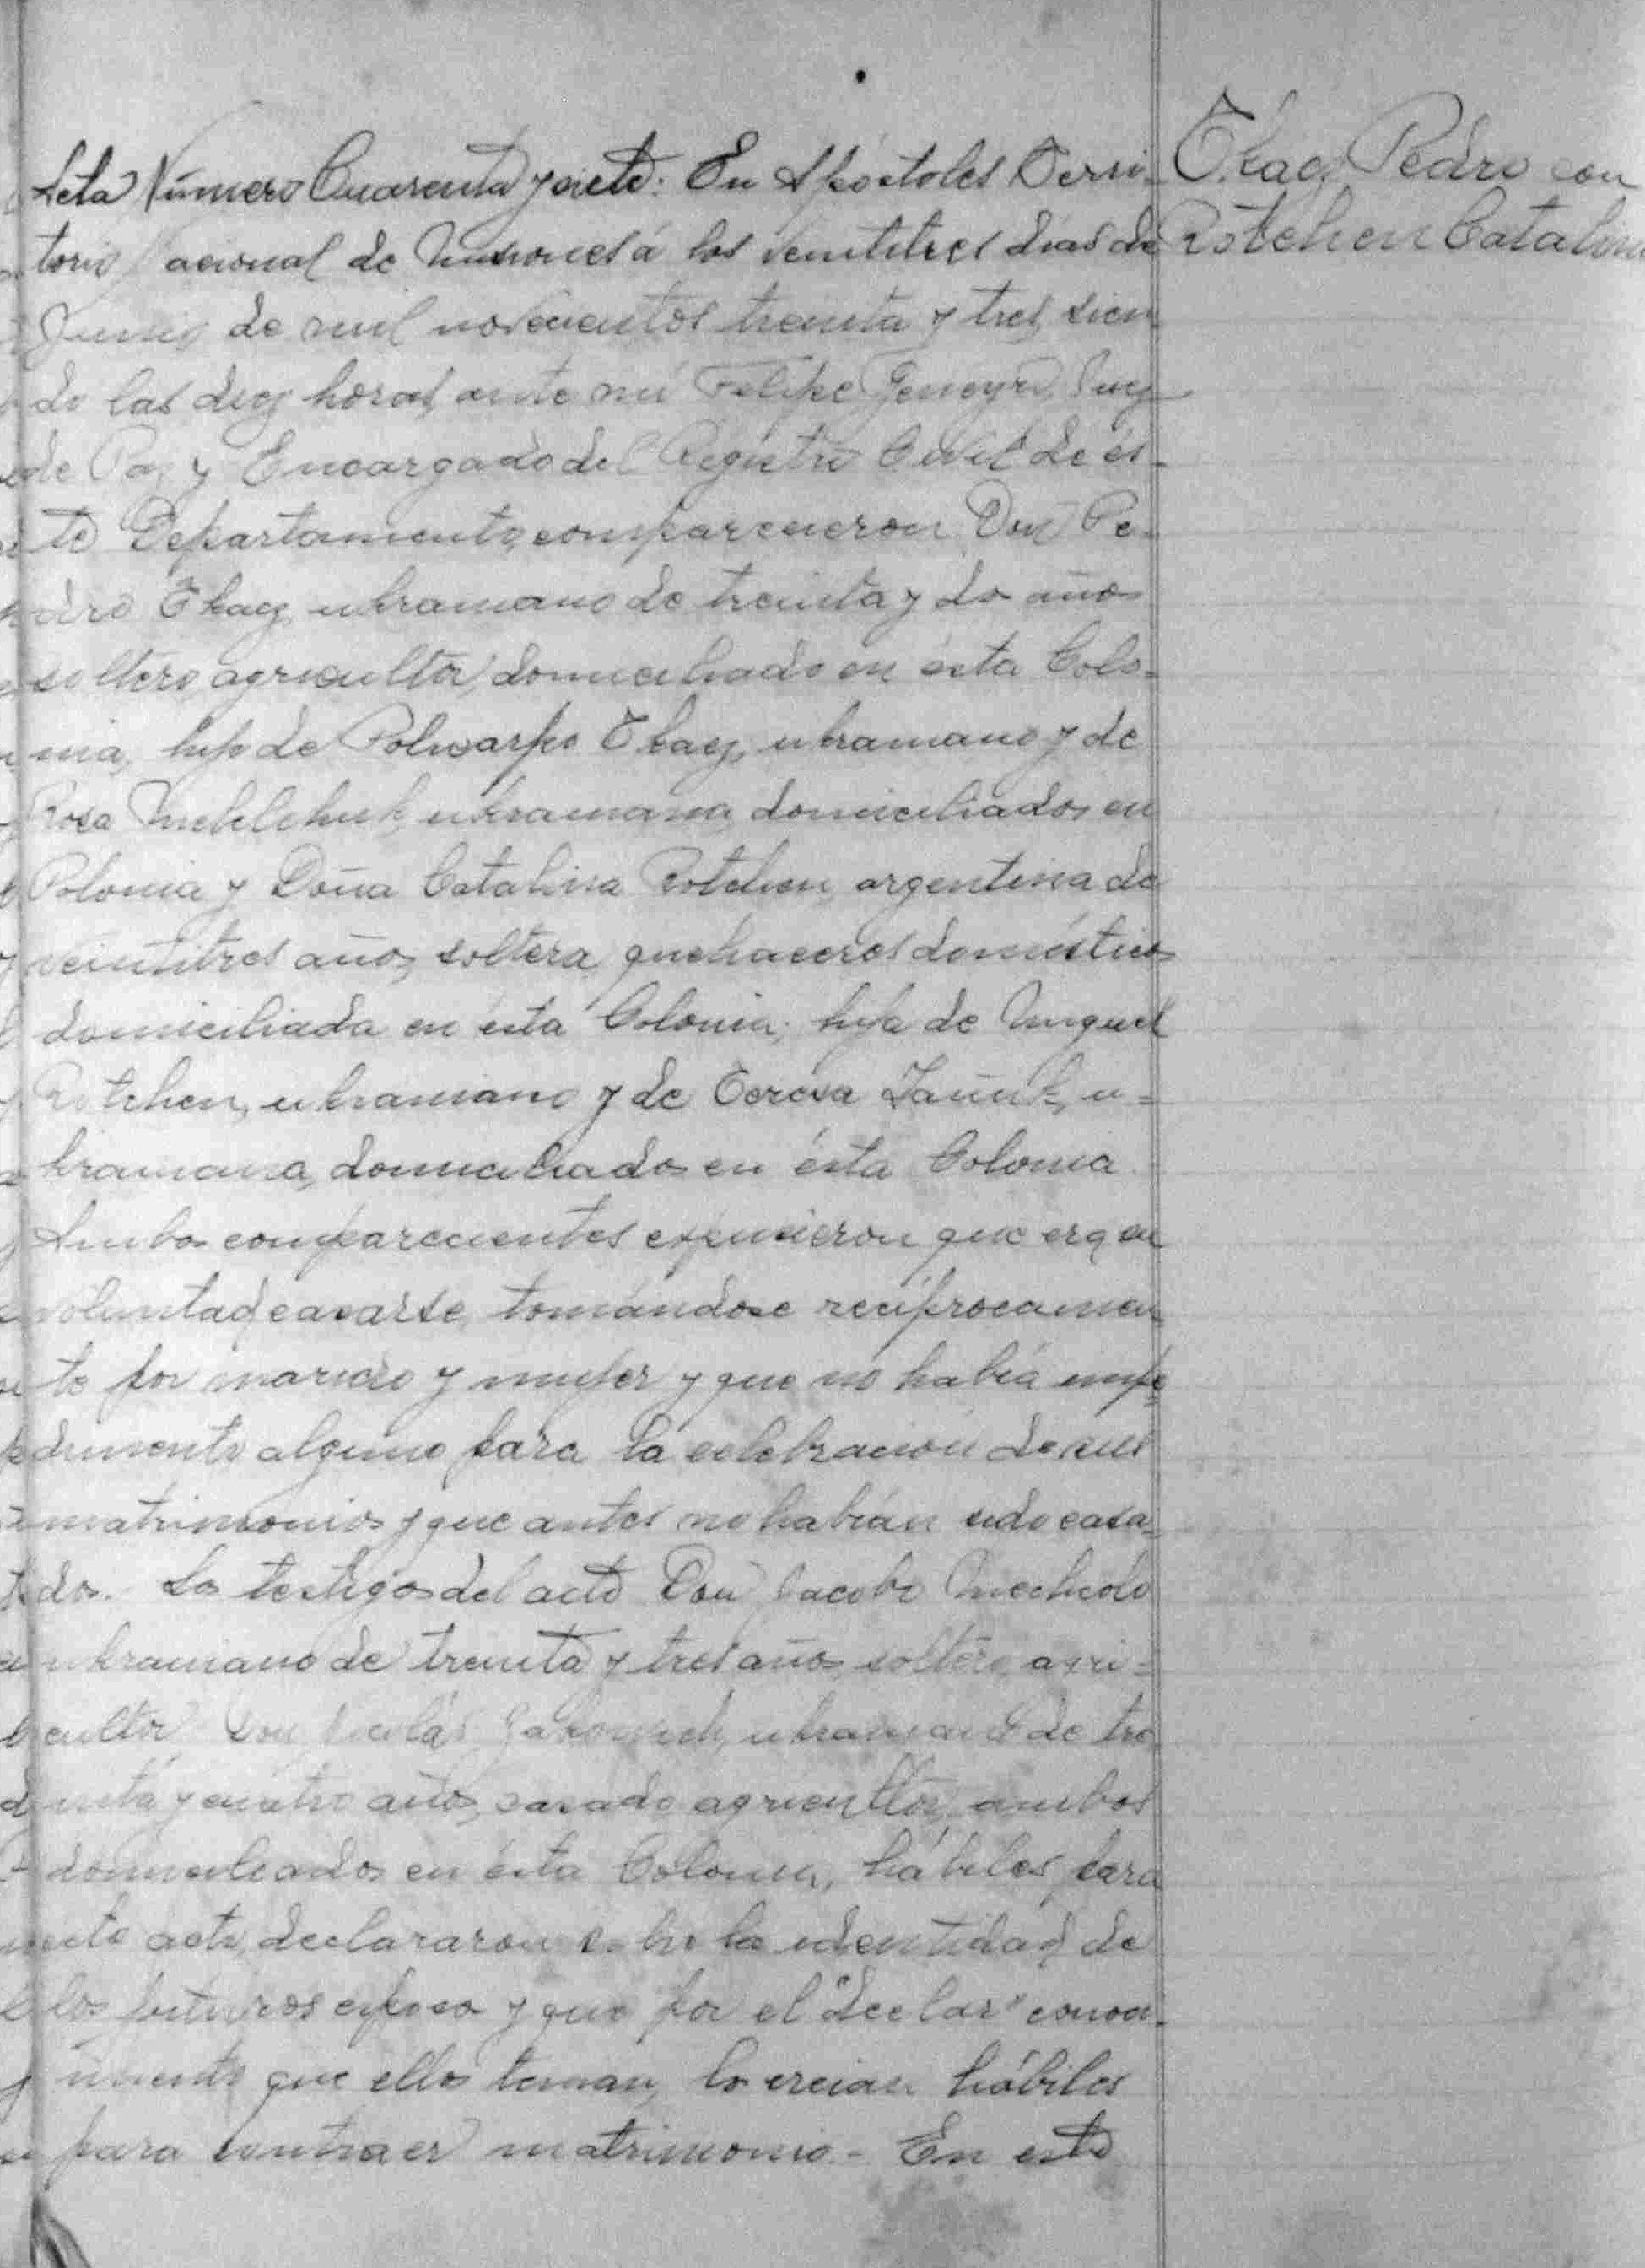 Acta Número Cuarenta y siete: En Apóstoles Terri-
torio Nacional de Misiones á los veintitres dias de
Junio de mil novecientos treinta y tres, sien
do las diez horas, ante mí Felipe Juez
de Paz y Encargado del Registro Civil de és-
te Departamento, comparecieron Don Pe-
dro Tkacz, ukraniano de treinta y dos años
soltero, agricultor, domiciliado en ésta Colo-
nia, hijo de Policarpo Tkacz, ukraniano y de
Rosa ukraniana, domiciliados en
Polonia y Doña Catalina Rotchen, argentina de
veintitres años, soltera, quehaceres domésticos
domiciliada en ésta Colonia, hija de Miguel
Rotchen, ukraniano y de Teresa u=
kraniana, domiciliados en ésta Colonia.
Ambos comparecientes expusieron que era su
voluntad casarse, tomándose recíprocamen
te por marido y mujer y que no había impe
dimento alguno para la celebración de sus
matrimonios y que antes no habían sido casa-
dos. Los testigos del acto Don Jacobo
ukraniano de treinta y tres años, soltero, agri=
cultor Don Nicolás ukraniano de tre
inta y cuatro años, casado, agricultor, ambos
domiciliados en ésta Colonia, hábiles para
este acto, declararon sobre la identidad de
los futuros esposos y que por el "declar" conoci-
miento que ellos tenian, los creian hábiles
para contraer matrimonio.- En este
Tkacz Pedro con
Rotchen Catalina